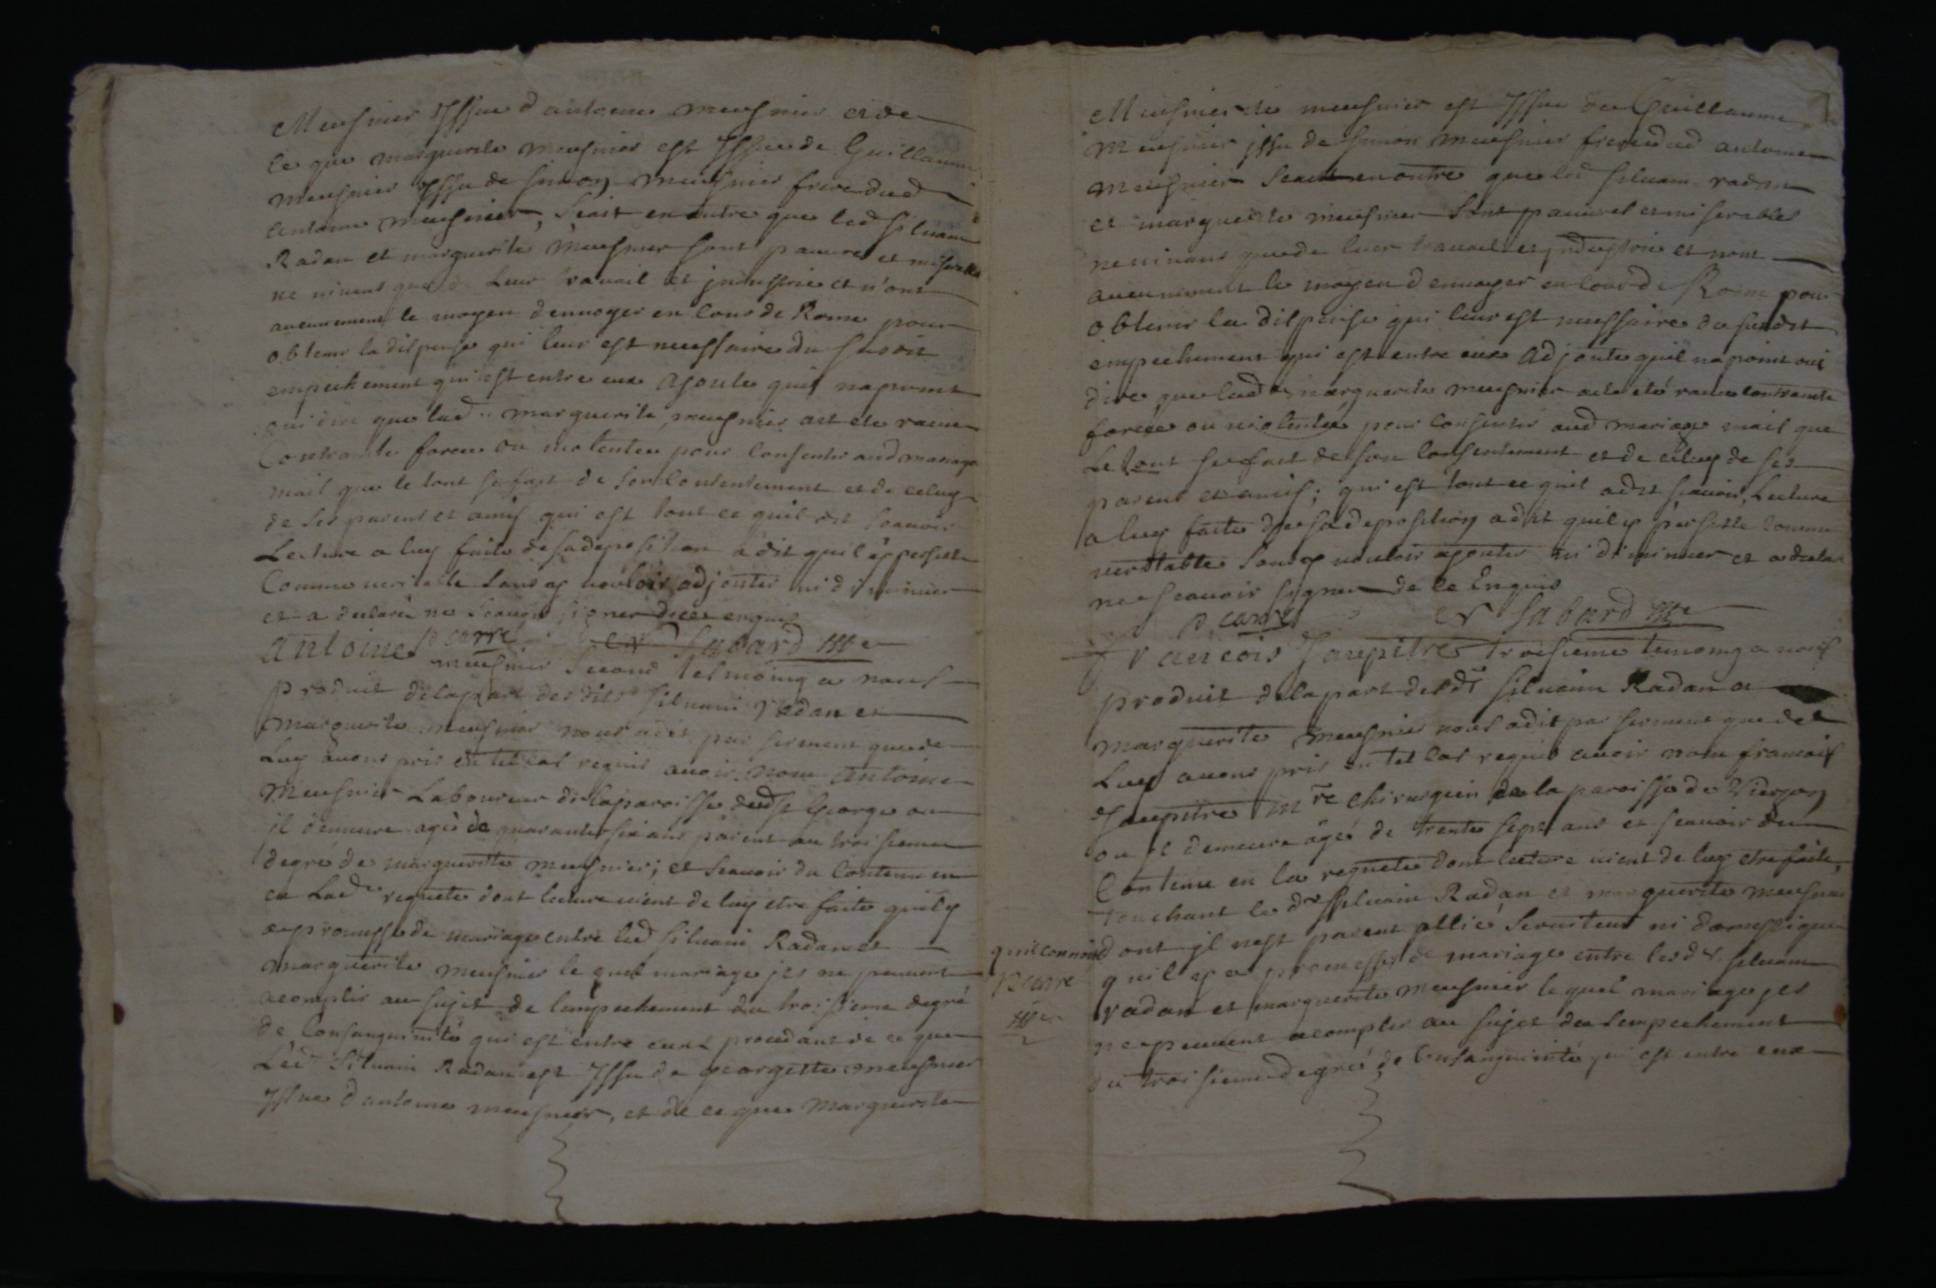 Meusnier Issue d'antoine meusnier et de
ce que marguerite meusnier est Issue de Guillaume
meusnier Issu de simon meusnier frere dud
antoine meusnier, Scait en outre que led silvain
Radan et marguerite meusnier sont pauvres et miserables
ne vivent que de Leur travail et jndustrie et n'ont
aucunement le moyen d'envoyer en Cour de Rome pour
obtenir la dispense qui leur est necessaire du susdit
empechement qui est entre eux ajoute quil na point
oui dire que lad.e marguerite meusnier ait ete ravie
Contrainte forcee ou violentee pour Consentir aud mariage
mais que le tout se fait de son Consentement et de celuy
de ses parens et amis qui est tout ce quil dit scavoir
Lecture a luy faite de sa deposition a dit quil y persiste
Comme veritable sans y vouloir adjouter ni diminuer
et a declaré ne scavoir signer de ce enquis
P Carré Sabard
Antoine meusnier Second tesmoing a nous
produit de la part desdits silvain Radan et
marguerite meusnier nous a dit par serment que de
Luy avons pris en tel cas requis avoir nom antoine
Meusnier Laboureur de la paroisse dud St George ou
il demeure agé de quarante six ans parent au troisieme
degré de marguerite meusnier; et scavoir du Contenu en
en Lad.e requete dont lecture vient de luy etre faite quil y
a promesse de mariage entre led silvain Radan et
marguerite meusnier le quel mariage jls ne peuvent
acomplir au sujet de l'empechement du troisieme degré
de Consanguinité qui est entre eux procedant de ce que
Led.t Silvain Radan est Issu de georgette meusnier
Issue d'antoine meusnier, et de ce que Marguerite
Meusnier la meusnier est Issue de Guillaume
meusnier jssu de simon meusnier frere dud antoine
meusnier Scait en outre que led silvain radan
et marguerite meusnier sont pauvres et miserables
ne vivans que de leur travail et jndustrie et n'ont
aucunement le moyen d'envoyer en Cour de Rome pour
obtenir la dispense qui leur est necessaire du susdit
empechement qui est entre eux adjoute quil na point oui
dire que lad.e marguerite meusnier ait eté ravie contrainte
forcee ou violentée pour Consentir aud mariage mais que
Le tout se fait de son Consentement et de celuy de ses
parens et amis; qui est tout ce quil a dit scavoir, Lecture
a luy faite de sa deposition a dit quil y persiste comme
veritable sans y vouloir ajouter ni diminuer et a declaré
ne scavoir signer de ce Enquis
P Carré Sabard
francois Jaupitre troisieme temoing a nous
produit de la part desd.ts silvain Radan et
marguerite meusnier nous a dit par serment que de
Luy avons pris en tel cas requis avoir nom francois
Jaupitre M.re chirurgien de la paroisse de Vierzon
ou jl demeure agé de trente sept ans et scavoir du
Contenu en la requete dont lecture vient de luy etre faite,
touchant led.t silvain Radan et marguerite meusnier
quil connoit
P Carré
dont jl n'est parent allié serviteur ni domestique
quil y a promesse de mariage entre lesd.ts silvain
radan et marguerite meusnier le quel mariage jls
ne peuvent acomplir au sujet de l'empechement
du troisieme degré de Consanguinité qui est entre eux